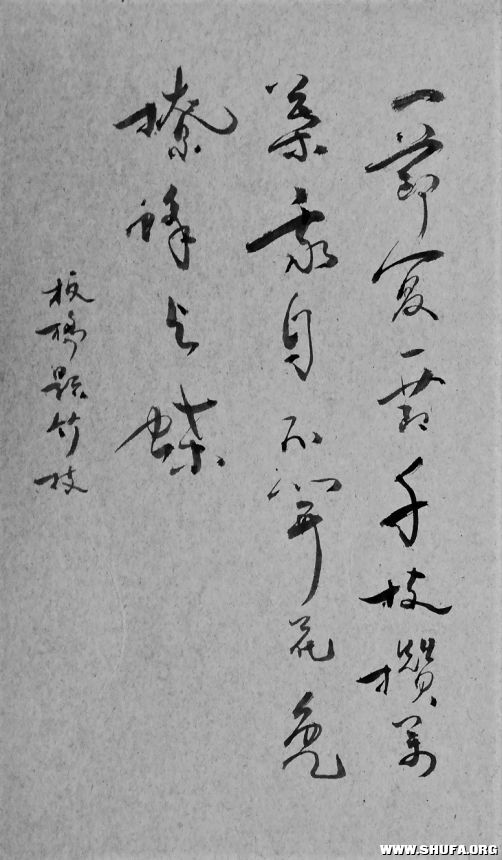 一節復一節千枝攢萬
葉我自不開花免
撩蜂與蝶
板橋題竹枝
WWW.SHUFA.ORG